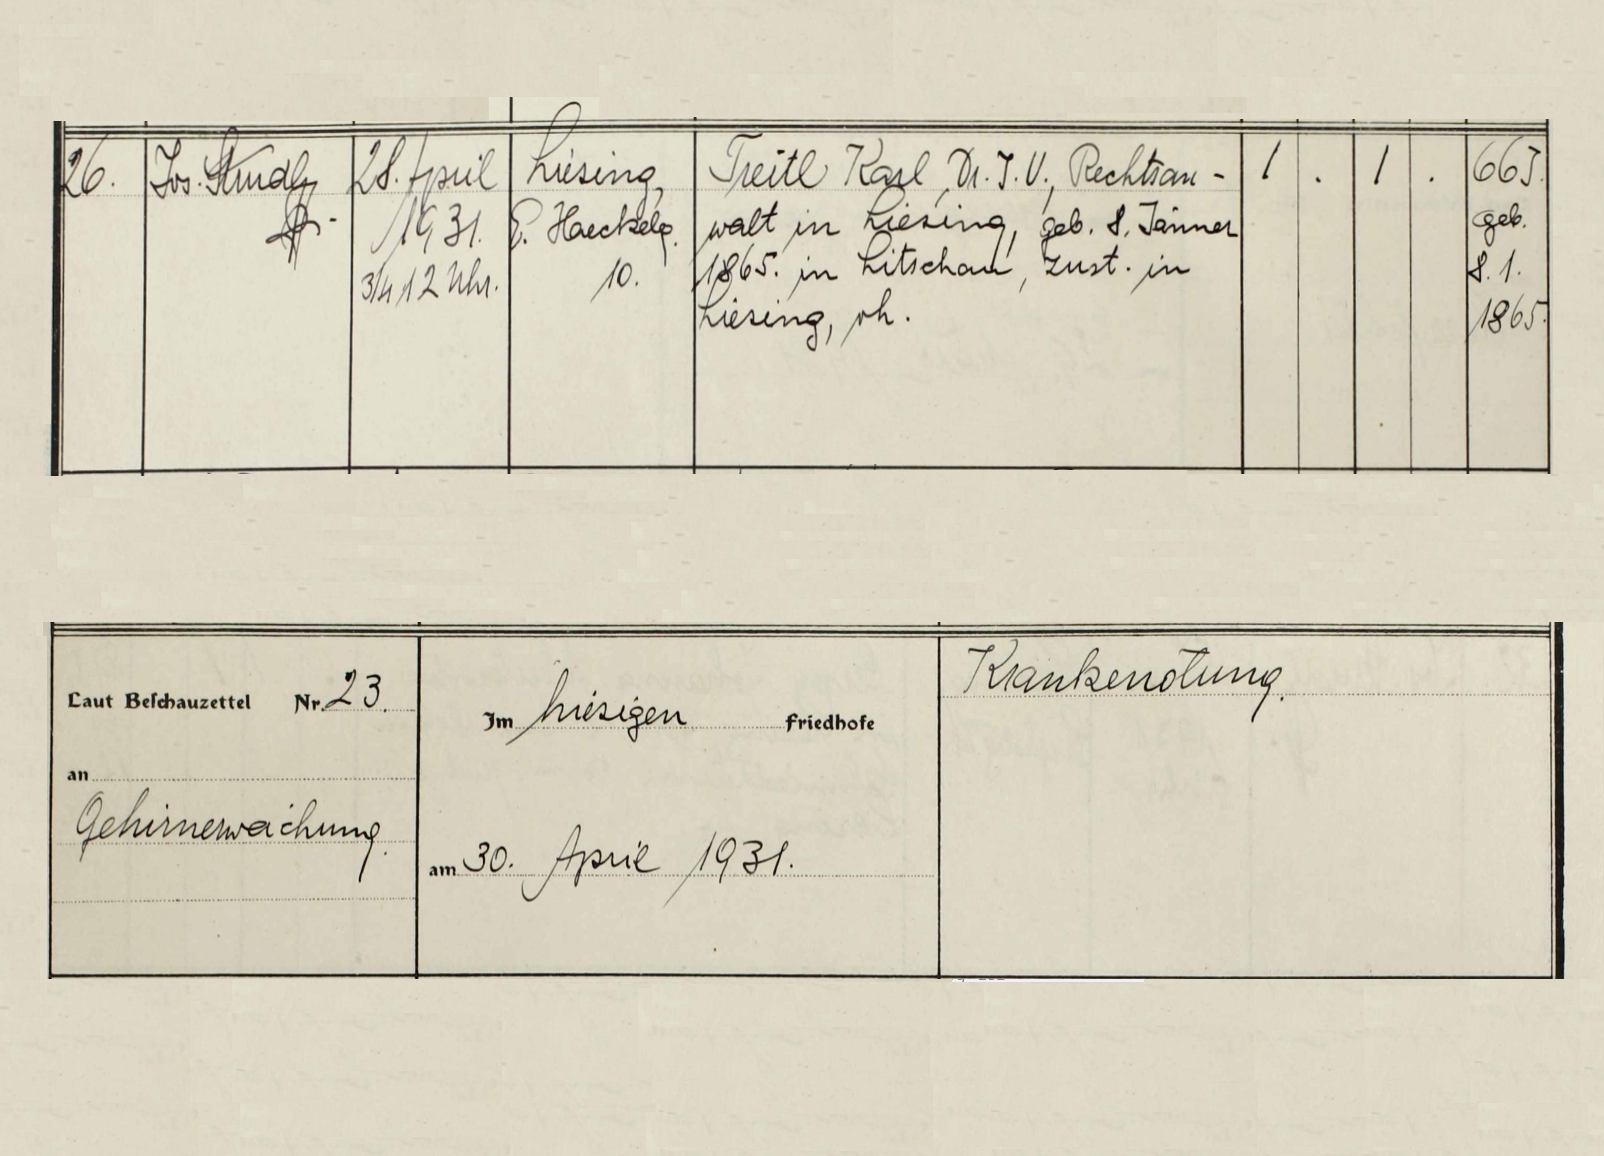 26.
Jos. Studly
28. April
1931.
3/4 12 Uhr.
Liesing,
E. Haeckelg.
10.
Treitl Karl, Dr. J. U., Rechtsan-
walt in Liesing, geb. 8. Jänner
1865. in Litschau, zust. in
Liesing, vh.
1 . 1 .
66J.
geb.
8. 1.
1865.
Laut Beschauzettel Nr. 23.
an
Gehirnerweichung.
Im hiesigen Friedhofe
am 30. April 1931.
Krankenölung.